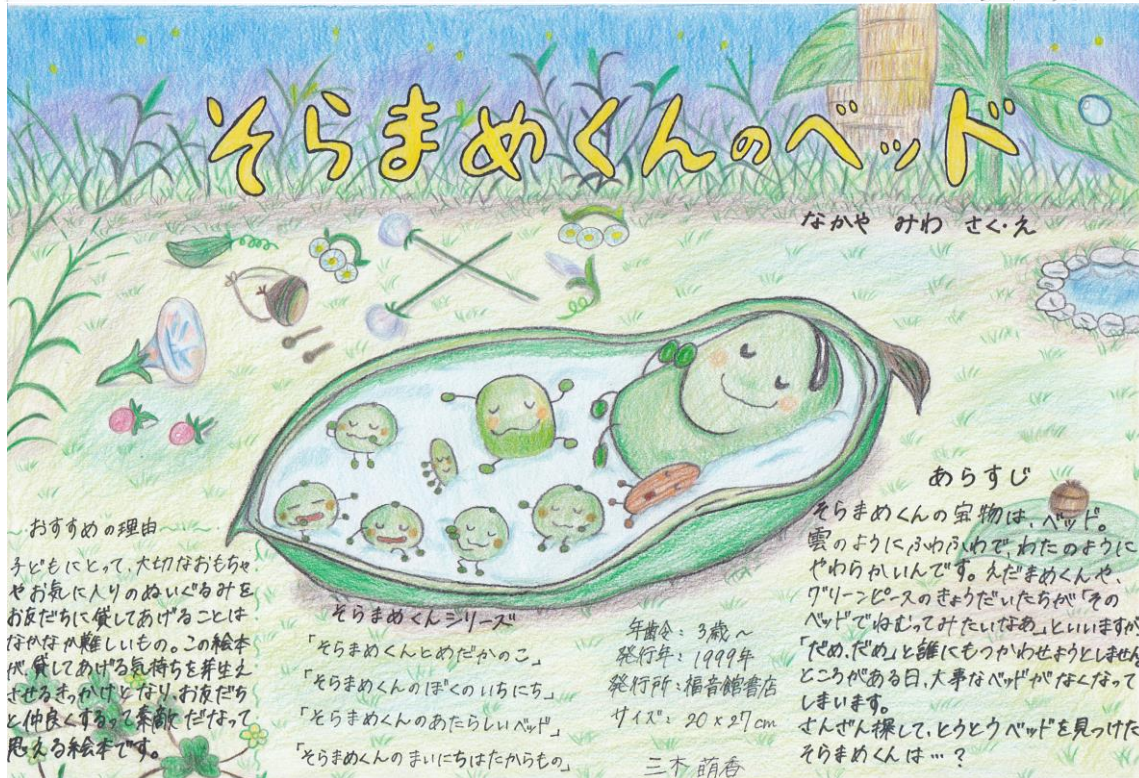 そらまめくんのベッド
なかや みわ さく・え
~おすすめの理由~
子どもにとって、大切なおもちゃ
やお気に入りのぬいぐるみを
お友だちに貸してあげることは
なかなか難しいもの。この絵本
が、貸してあげる気持ちを芽生え
させるきっかけとなり、お友だち
と仲良くするって素敵だなって
思える絵本です。
そらまめくんシリーズ
「そらまめくんとめだかのこ」
「そらまめくんのぼくのいちにち」
「そらまめくんのあたらしいベッド」
「そらまめくんのまいにちはたからもの」
年齢:3歳~
発行年:1999年
発行所:福音館書店
サイズ:20×27cm
三木 萌香
あらすじ
そらまめくんの宝物は、ベッド。
雲のようにふわふわで、わたのように
やわらかいんです。えだまめくんや、
グリーンピースのきょうだいたちが「その
ベッドでねむってみたいなあ」といいますが
「だめ、だめ」と誰にもつかわせようとしません
ところがある日、大事なベッドがなくなって
しまいます。
さんざん探して、とうとうベッドを見つけた
そらまめくんは…?